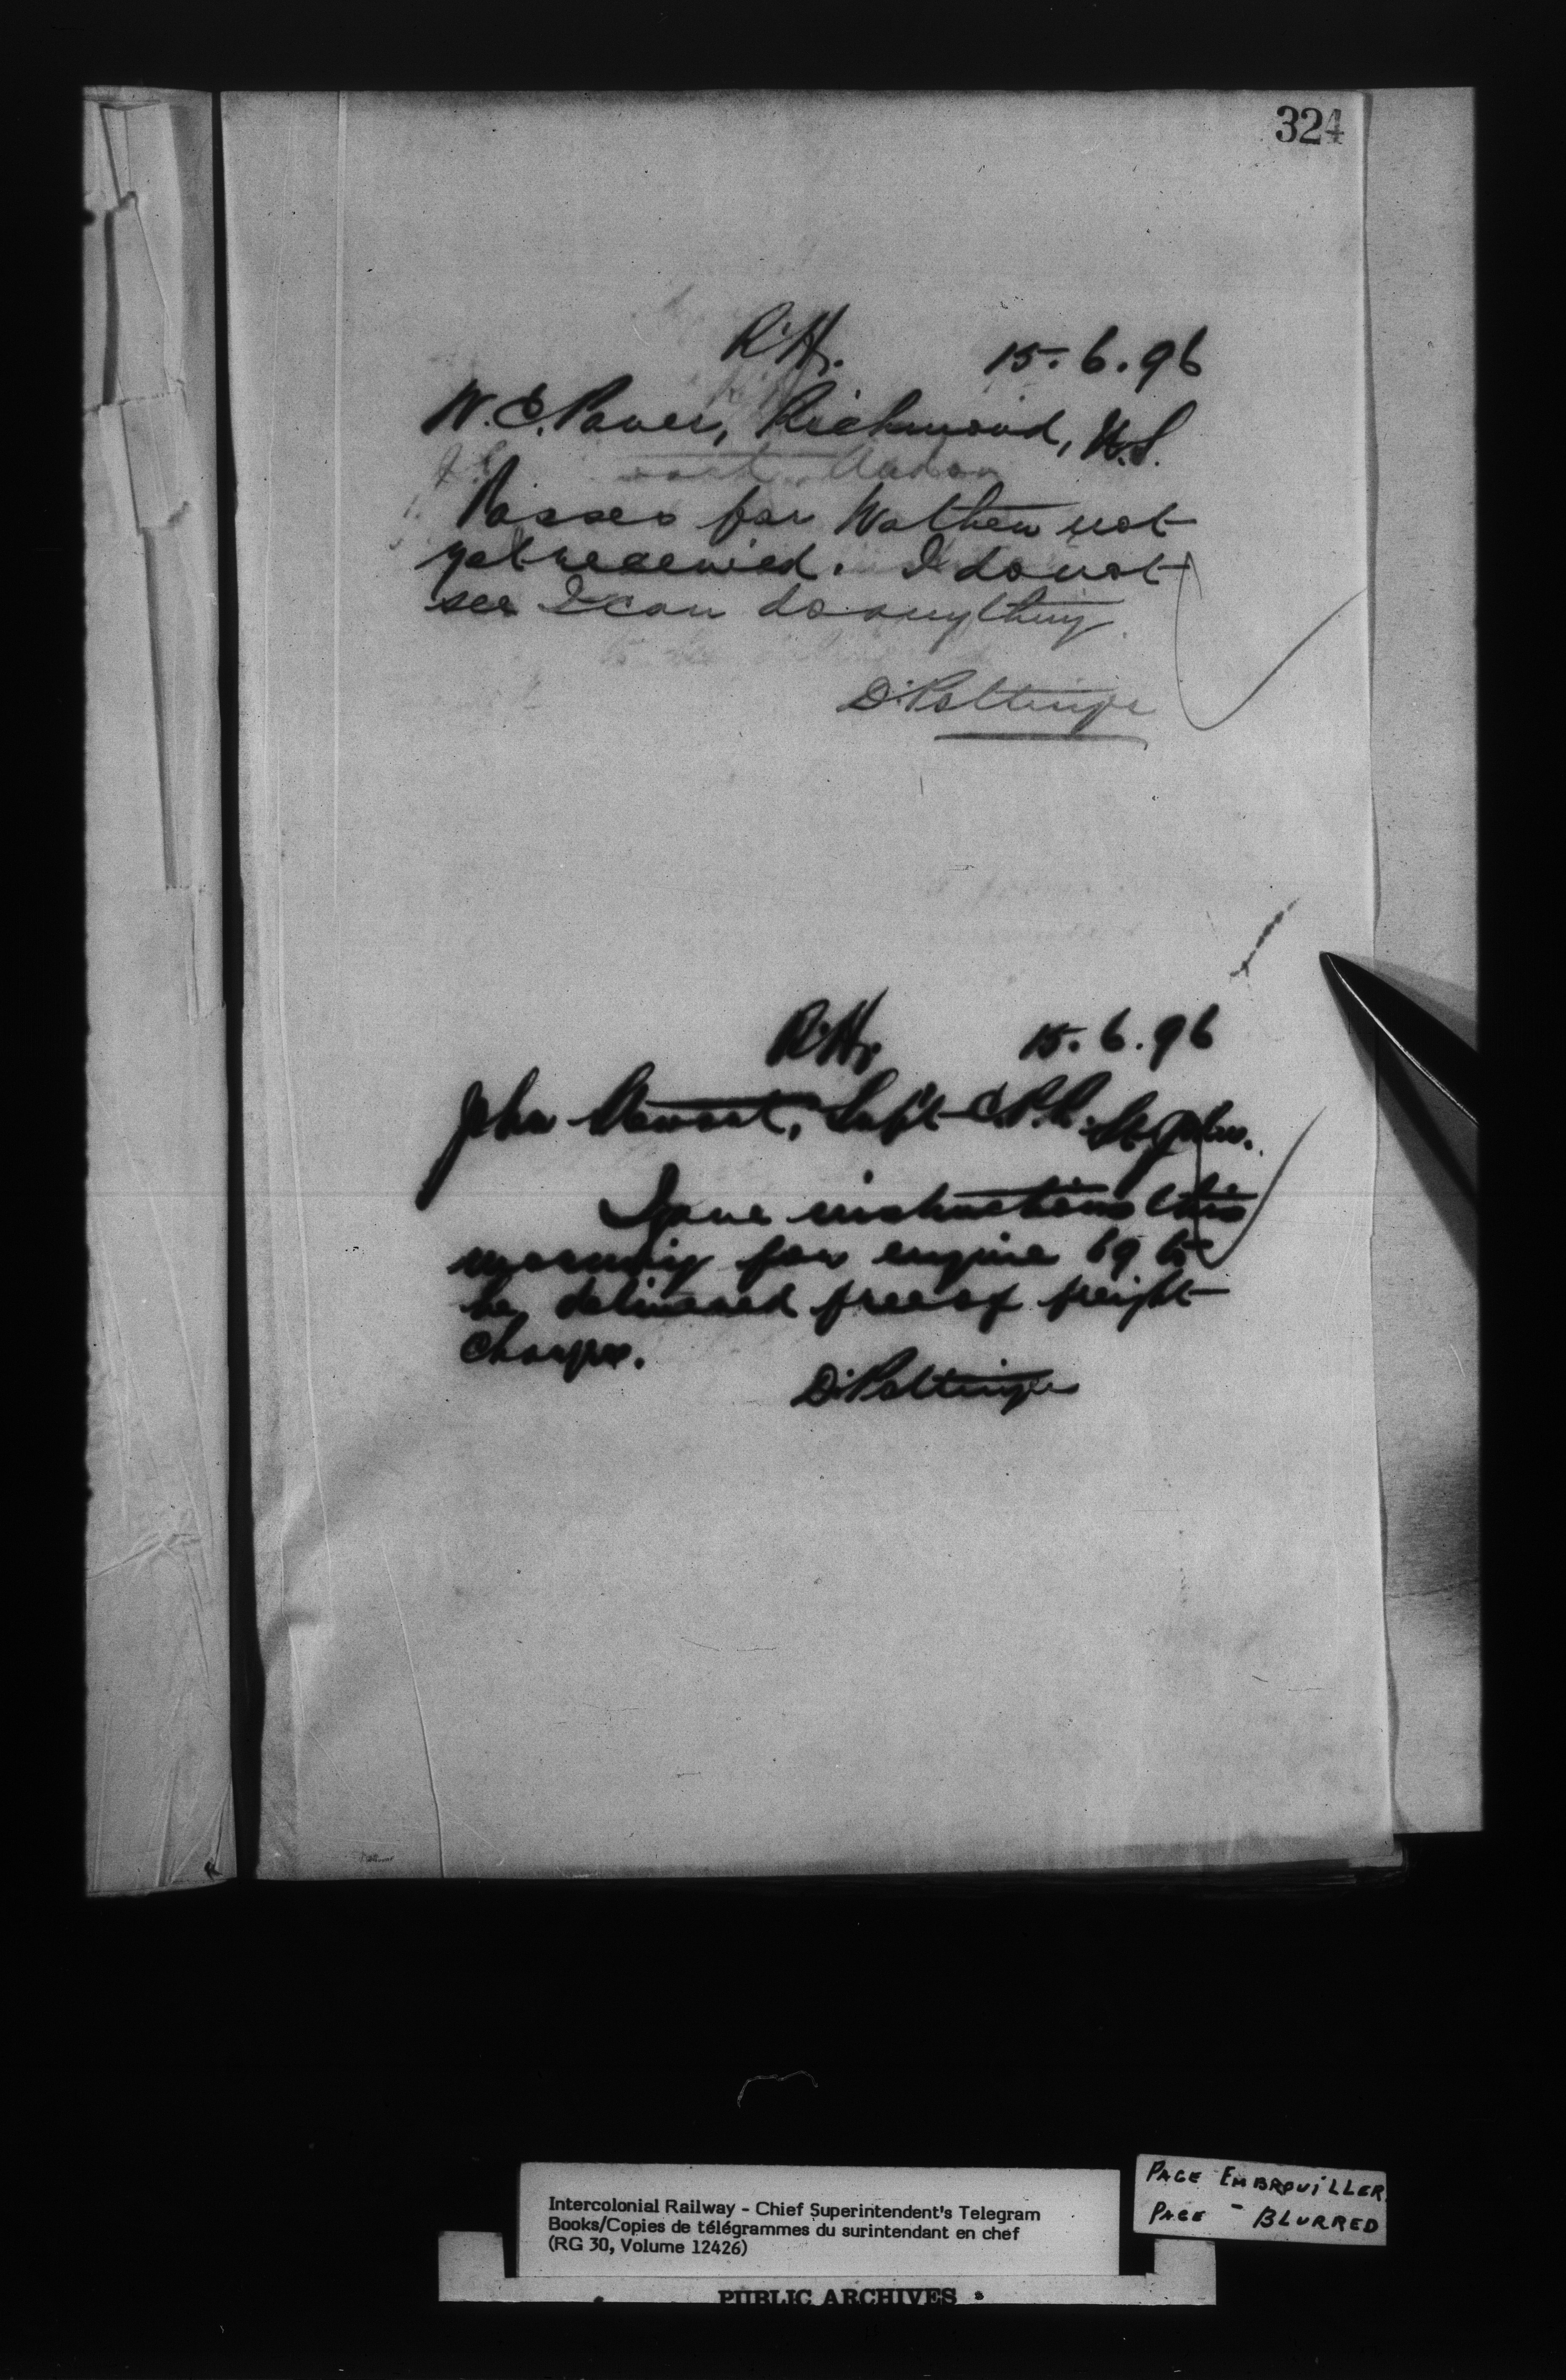 324
R'Y. 15.6.96
W. C. Paver, Richmond, N.S.
Passes for Wathen not
yet received. I do not
see I can do anything.
D. Pottinger
R'Y. 15.6.96
John Stewart, Supt C.P.R. St John.
I gave instructions this
morning for engine 69 to
be delivered free of freight
charges.
D. Pottinger
Intercolonial Railway - Chief Superintendent's Telegram
Books/Copies de télégrammes du surintendant en chef
(RG 30, Volume 12426)
PAGE EMBROUILLER
PAGE - BLURRED
PUBLIC ARCHIVES